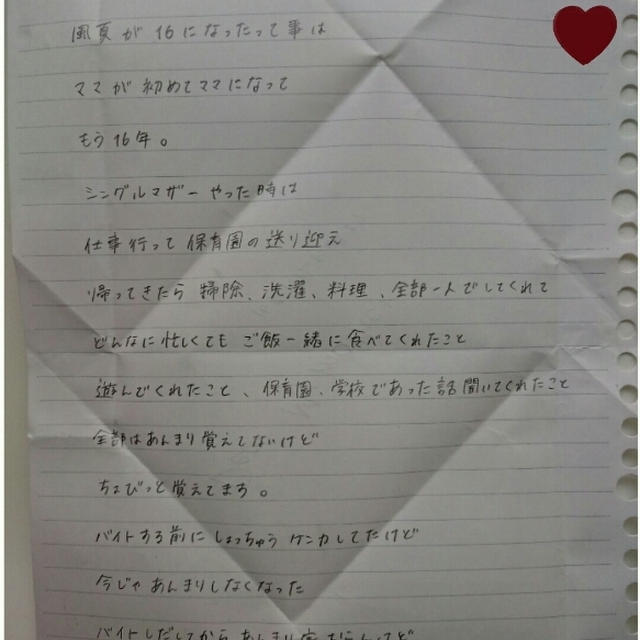 風夏が16になったって事は
ママが初めてママになって
もう16年。
シングルマザーやった時は
仕事行って保育園の送り迎え
帰ってきたら掃除、洗濯、料理、全部一人でしてくれて
どんなに忙しくてもご飯一緒に食べてくれたこと
遊んでくれたこと、保育園、学校であった話聞いてくれたこと
全部はあんまり覚えてないけど
ちょびっと覚えてます。
バイトする前にしょっちゅうケンカしてたけど
今じゃあんまりしなくなった
バイトしだしてからあんまり家おらんけど